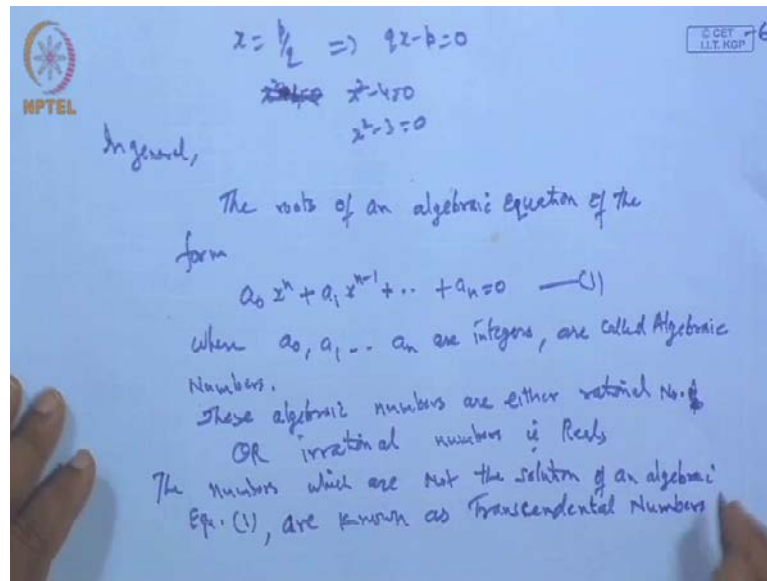 x = p/q => qx-p=0
© CET
I.I.T. KGP
NPTEL
x²-4=0
x²-3=0
In general,
The roots of an algebraic equation of the
form
a₀xⁿ + a₁xⁿ⁻¹ + .. + aₙ=0 —(1)
where a₀, a₁ .. aₙ are integers, are called Algebraic
Numbers.
These algebraic numbers are either rational No.
OR irrational numbers ie Reals
The numbers which are not the solution of an algebraic
Eqn. (1), are known as Transcendental Numbers